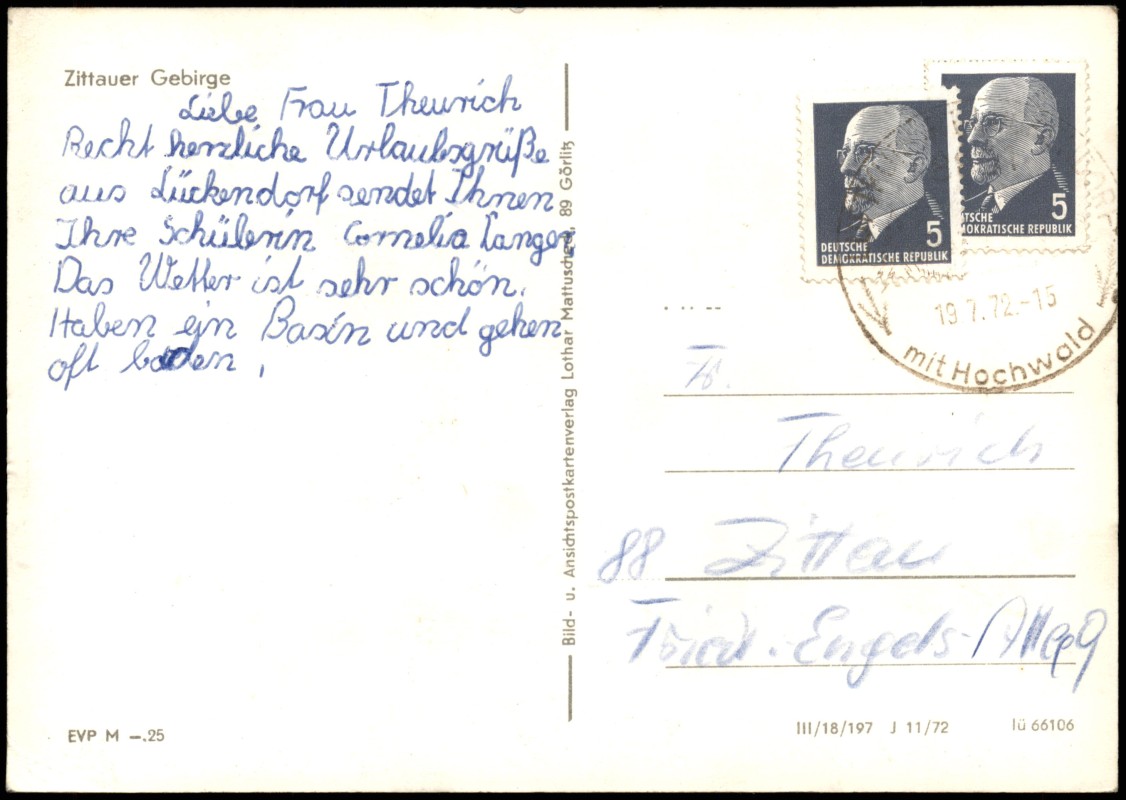 Zittauer Gebirge
Liebe Frau Theurich
Recht herzliche Urlaubsgrüße
aus Lückendorf sendet Ihnen
Ihre Schülerin Cornelia Langer
Das Wetter ist sehr schön.
Haben ein Basin und gehen
oft baden.
EVP M –.25
Bild- u. Ansichtspostkartenverlag Lothar Mattusche, 89 Görlitz
DEUTSCHE
DEMOKRATISCHE REPUBLIK
5
UTSCHE
MOKRATISCHE REPUBLIK
5
19.7.72.-15
mit Hochwald
Fr.
Theurich
88 Zittau
Fried.-Engels-Allee 9
III/18/197 J 11/72 lü 66106